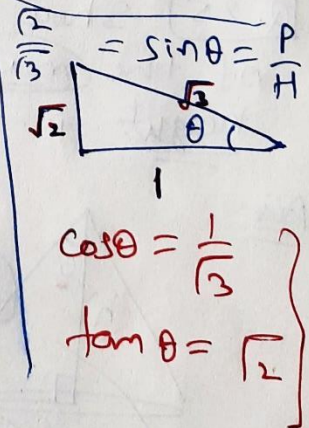 √2/√3 = sinθ = P/H
√3
√2
θ
1
cosθ = 1/√3
tan θ = √2